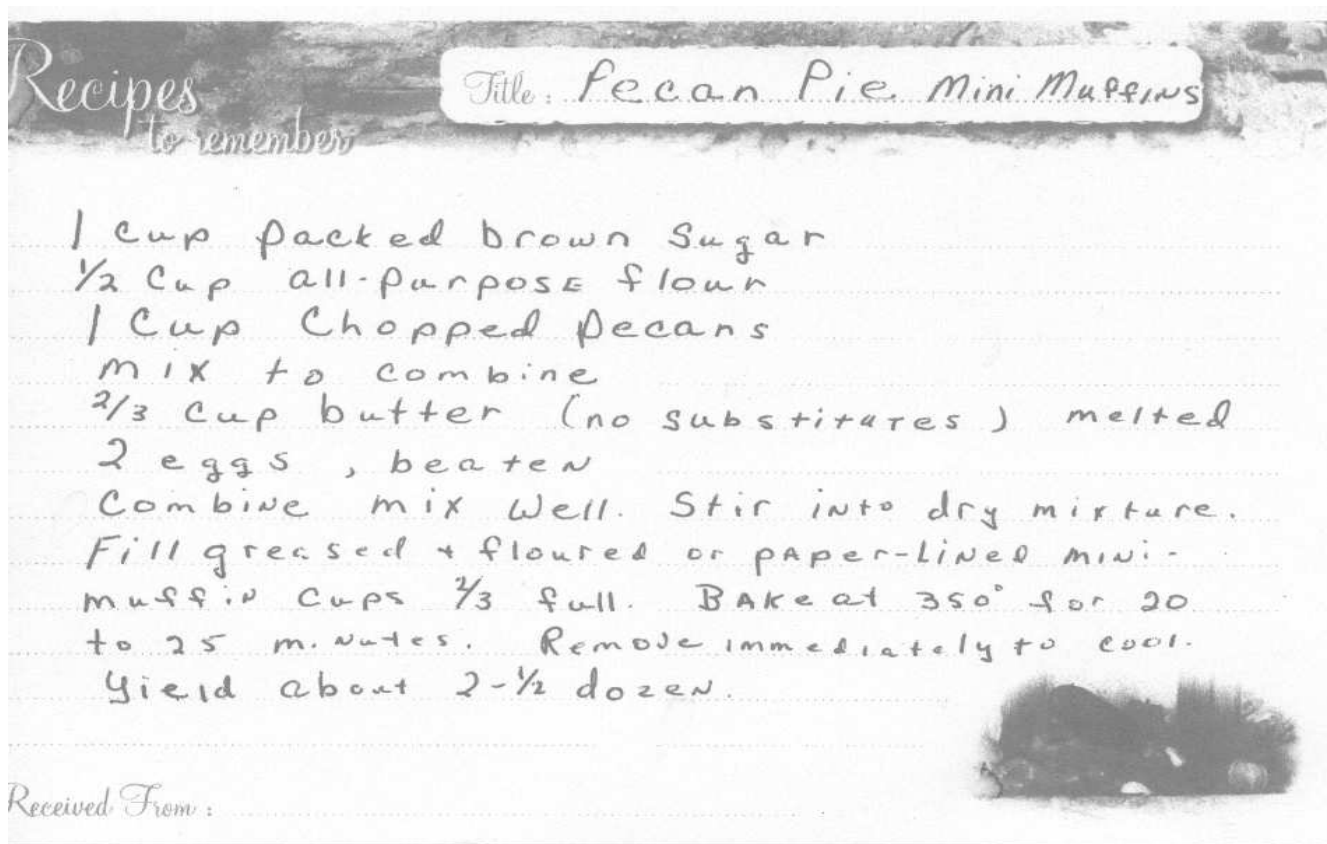 Recipes
to remember
Title: Pecan Pie Mini Muffins
1 Cup packed brown Sugar
1/2 Cup all-purpose flour
1 Cup Chopped pecans
mix to combine
2/3 Cup butter (no substitutes) melted
2 eggs, beaten
Combine mix Well. Stir into dry mixture.
Fill greased + floured or paper-lined mini-
muffin cups 2/3 full. Bake at 350° for 20
to 25 minutes. Remove immediately to cool.
Yield about 2-1/2 dozen.
Received From: